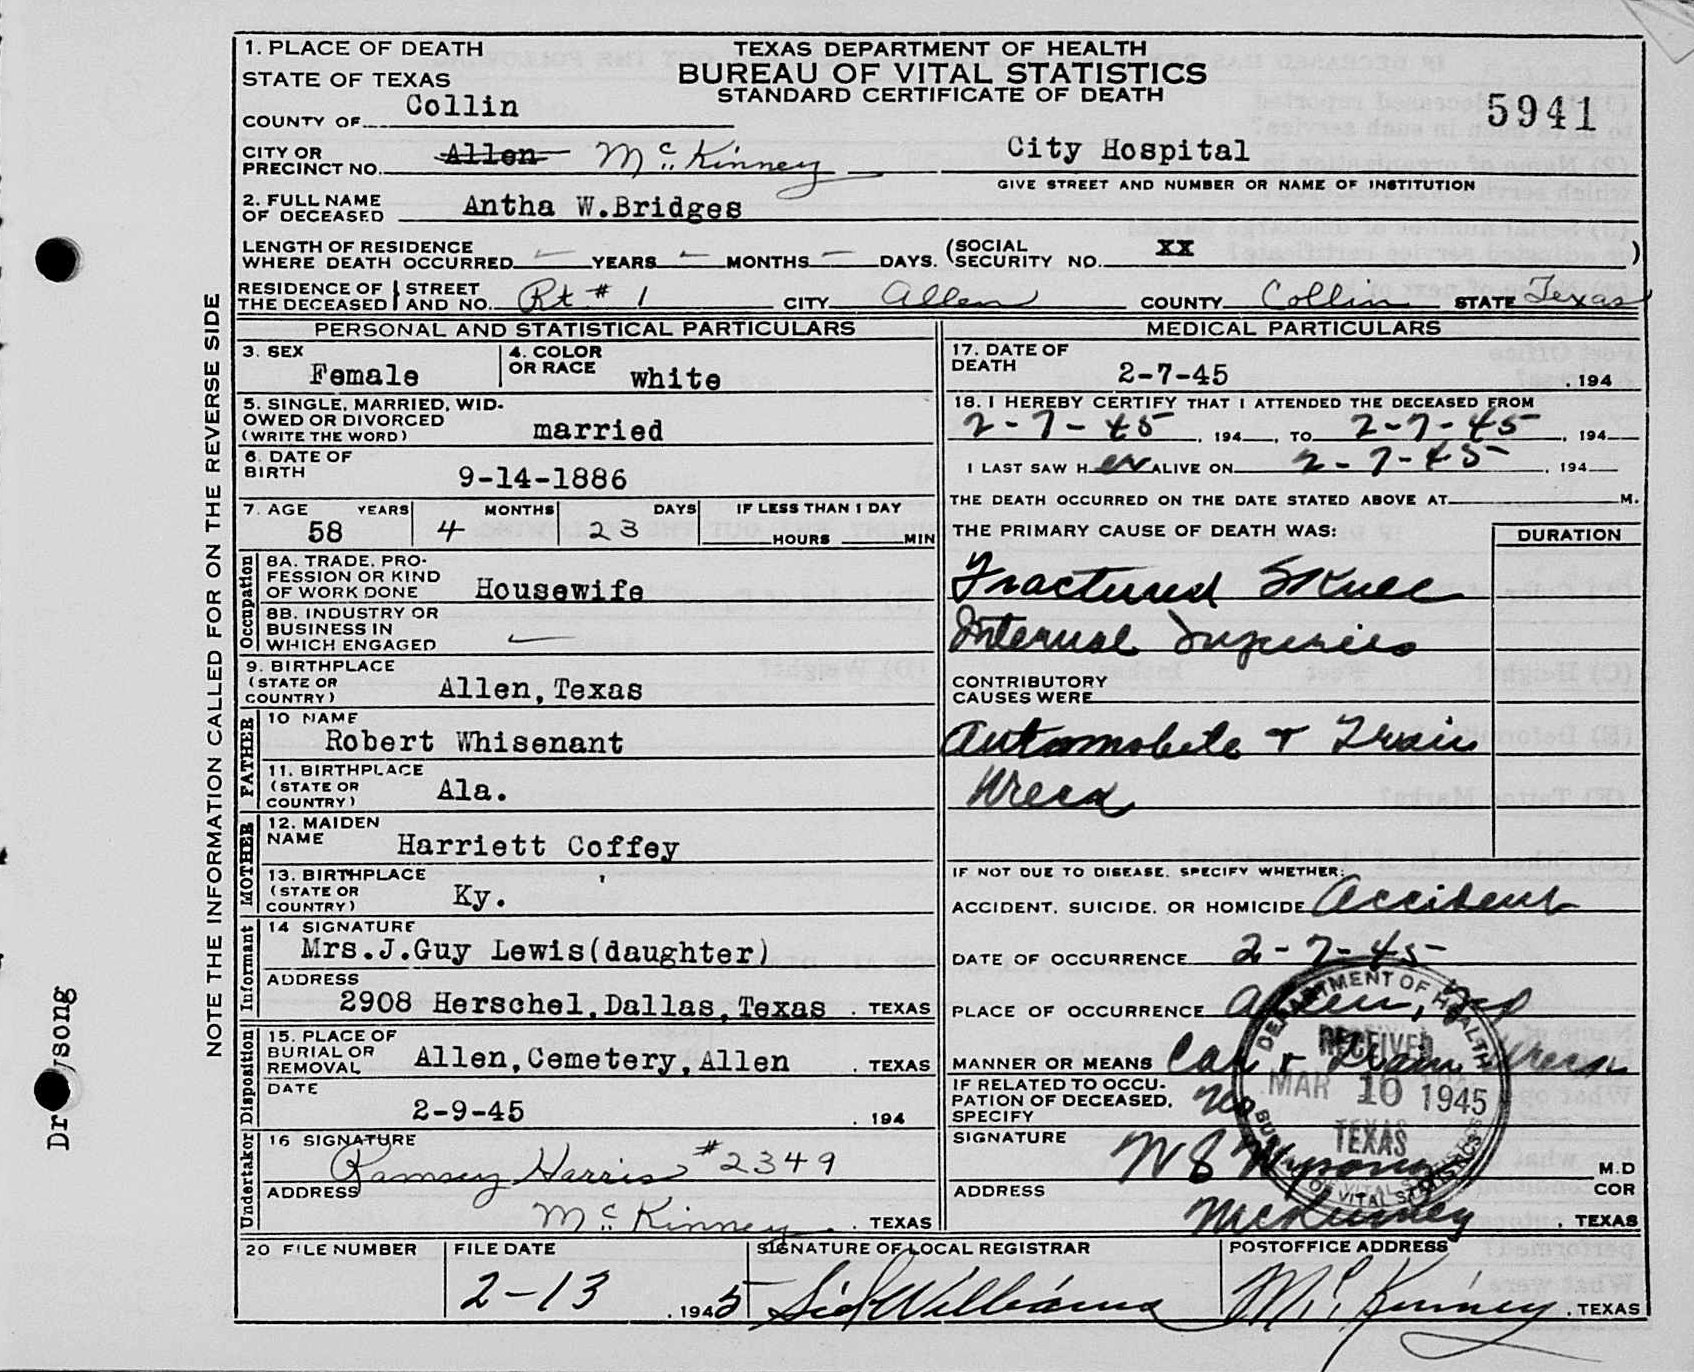 1. PLACE OF DEATH
STATE OF TEXAS
COUNTY OF Collin
TEXAS DEPARTMENT OF HEALTH
BUREAU OF VITAL STATISTICS
STANDARD CERTIFICATE OF DEATH
5941
CITY OR PRECINCT NO. Allen McKinney City Hospital
GIVE STREET AND NUMBER OR NAME OF INSTITUTION
2. FULL NAME OF DECEASED Antha W.Bridges
LENGTH OF RESIDENCE WHERE DEATH OCCURRED — YEARS — MONTHS — DAYS. (SOCIAL SECURITY NO. XX )
RESIDENCE OF THE DECEASED STREET AND NO. Rt # 1 CITY Allen COUNTY Collin STATE Texas
NOTE THE INFORMATION CALLED FOR ON THE REVERSE SIDE
PERSONAL AND STATISTICAL PARTICULARS
3. SEX Female
4. COLOR OR RACE white
5. SINGLE, MARRIED, WIDOWED OR DIVORCED (WRITE THE WORD) married
6. DATE OF BIRTH 9-14-1886
7. AGE YEARS 58 MONTHS 4 DAYS 23 IF LESS THAN 1 DAY HOURS MIN
Occupation
8A. TRADE, PROFESSION OR KIND OF WORK DONE Housewife
8B. INDUSTRY OR BUSINESS IN WHICH ENGAGED —
9. BIRTHPLACE (STATE OR COUNTRY) Allen,Texas
FATHER
10 NAME Robert Whisenant
11. BIRTHPLACE (STATE OR COUNTRY) Ala.
MOTHER
12. MAIDEN NAME Harriett Coffey
13. BIRTHPLACE (STATE OR COUNTRY) Ky.
Informant
14 SIGNATURE Mrs.J.Guy Lewis(daughter)
ADDRESS 2908 Herschel.Dallas,Texas . TEXAS
Disposition
15. PLACE OF BURIAL OR REMOVAL Allen,Cemetery,Allen . TEXAS
DATE 2-9-45 . 194
Undertaker
16 SIGNATURE Ramsey Harris #2349
ADDRESS McKinney . TEXAS
MEDICAL PARTICULARS
17. DATE OF DEATH 2-7-45 . 194
18. I HEREBY CERTIFY THAT I ATTENDED THE DECEASED FROM
2-7-45 , 194 , TO 2-7-45 , 194
I LAST SAW H er ALIVE ON 2-7-45 , 194
THE DEATH OCCURRED ON THE DATE STATED ABOVE AT M.
THE PRIMARY CAUSE OF DEATH WAS: DURATION
Fractured Skull
Internal Injuries
CONTRIBUTORY CAUSES WERE
Automobile & Train
Wreck
IF NOT DUE TO DISEASE, SPECIFY WHETHER:
ACCIDENT, SUICIDE, OR HOMICIDE Accident
DATE OF OCCURRENCE 2-7-45
PLACE OF OCCURRENCE Allen,
MANNER OR MEANS Car & Train Wreck
IF RELATED TO OCCUPATION OF DECEASED, SPECIFY No
SIGNATURE W S Wysong M.D COR
ADDRESS McKinney . TEXAS
DEPARTMENT OF HEALTH
RECEIVED
MAR 10 1945
TEXAS
BUREAU OF VITAL STATISTICS
20 FILE NUMBER
FILE DATE 2-13 , 1945
SIGNATURE OF LOCAL REGISTRAR Sid Williams
POSTOFFICE ADDRESS McKinney . TEXAS